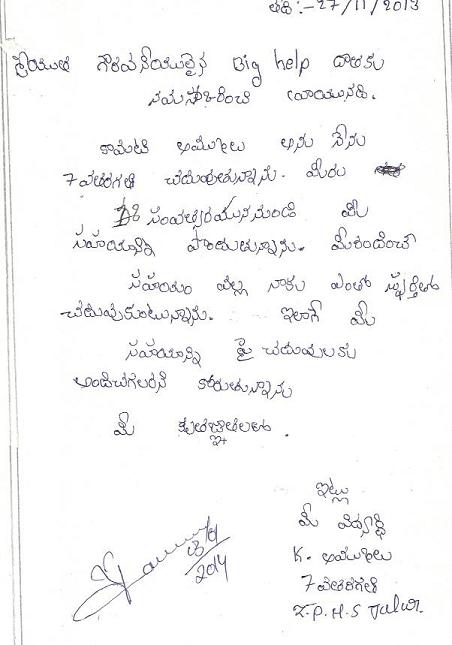 తేది :- 27/11/2013
శ్రీయుత గౌరవనీయులైన Big help దాతకు
నమస్కరించి వ్రాయునది.
అను నేను
7వతరగతి చదువుతున్నాను. మీరు
సంవత్సరమునుండి మీ
సహాయాన్ని పొందుతున్నాను. మీరందించే
సహాయం వల్ల నాకు ఎంతో స్ఫూర్తితో
చదువుకుంటున్నాను. ఇలాగే మీ
సహాయాన్ని పై చదువులకు
అందించగలరని కోరుతున్నాను
మీ కృతజ్ఞతలతో.
ఇట్లు
మీ విద్యార్థి
K. అమ్ములు
7వతరగతి
Z.P.H.S
2014